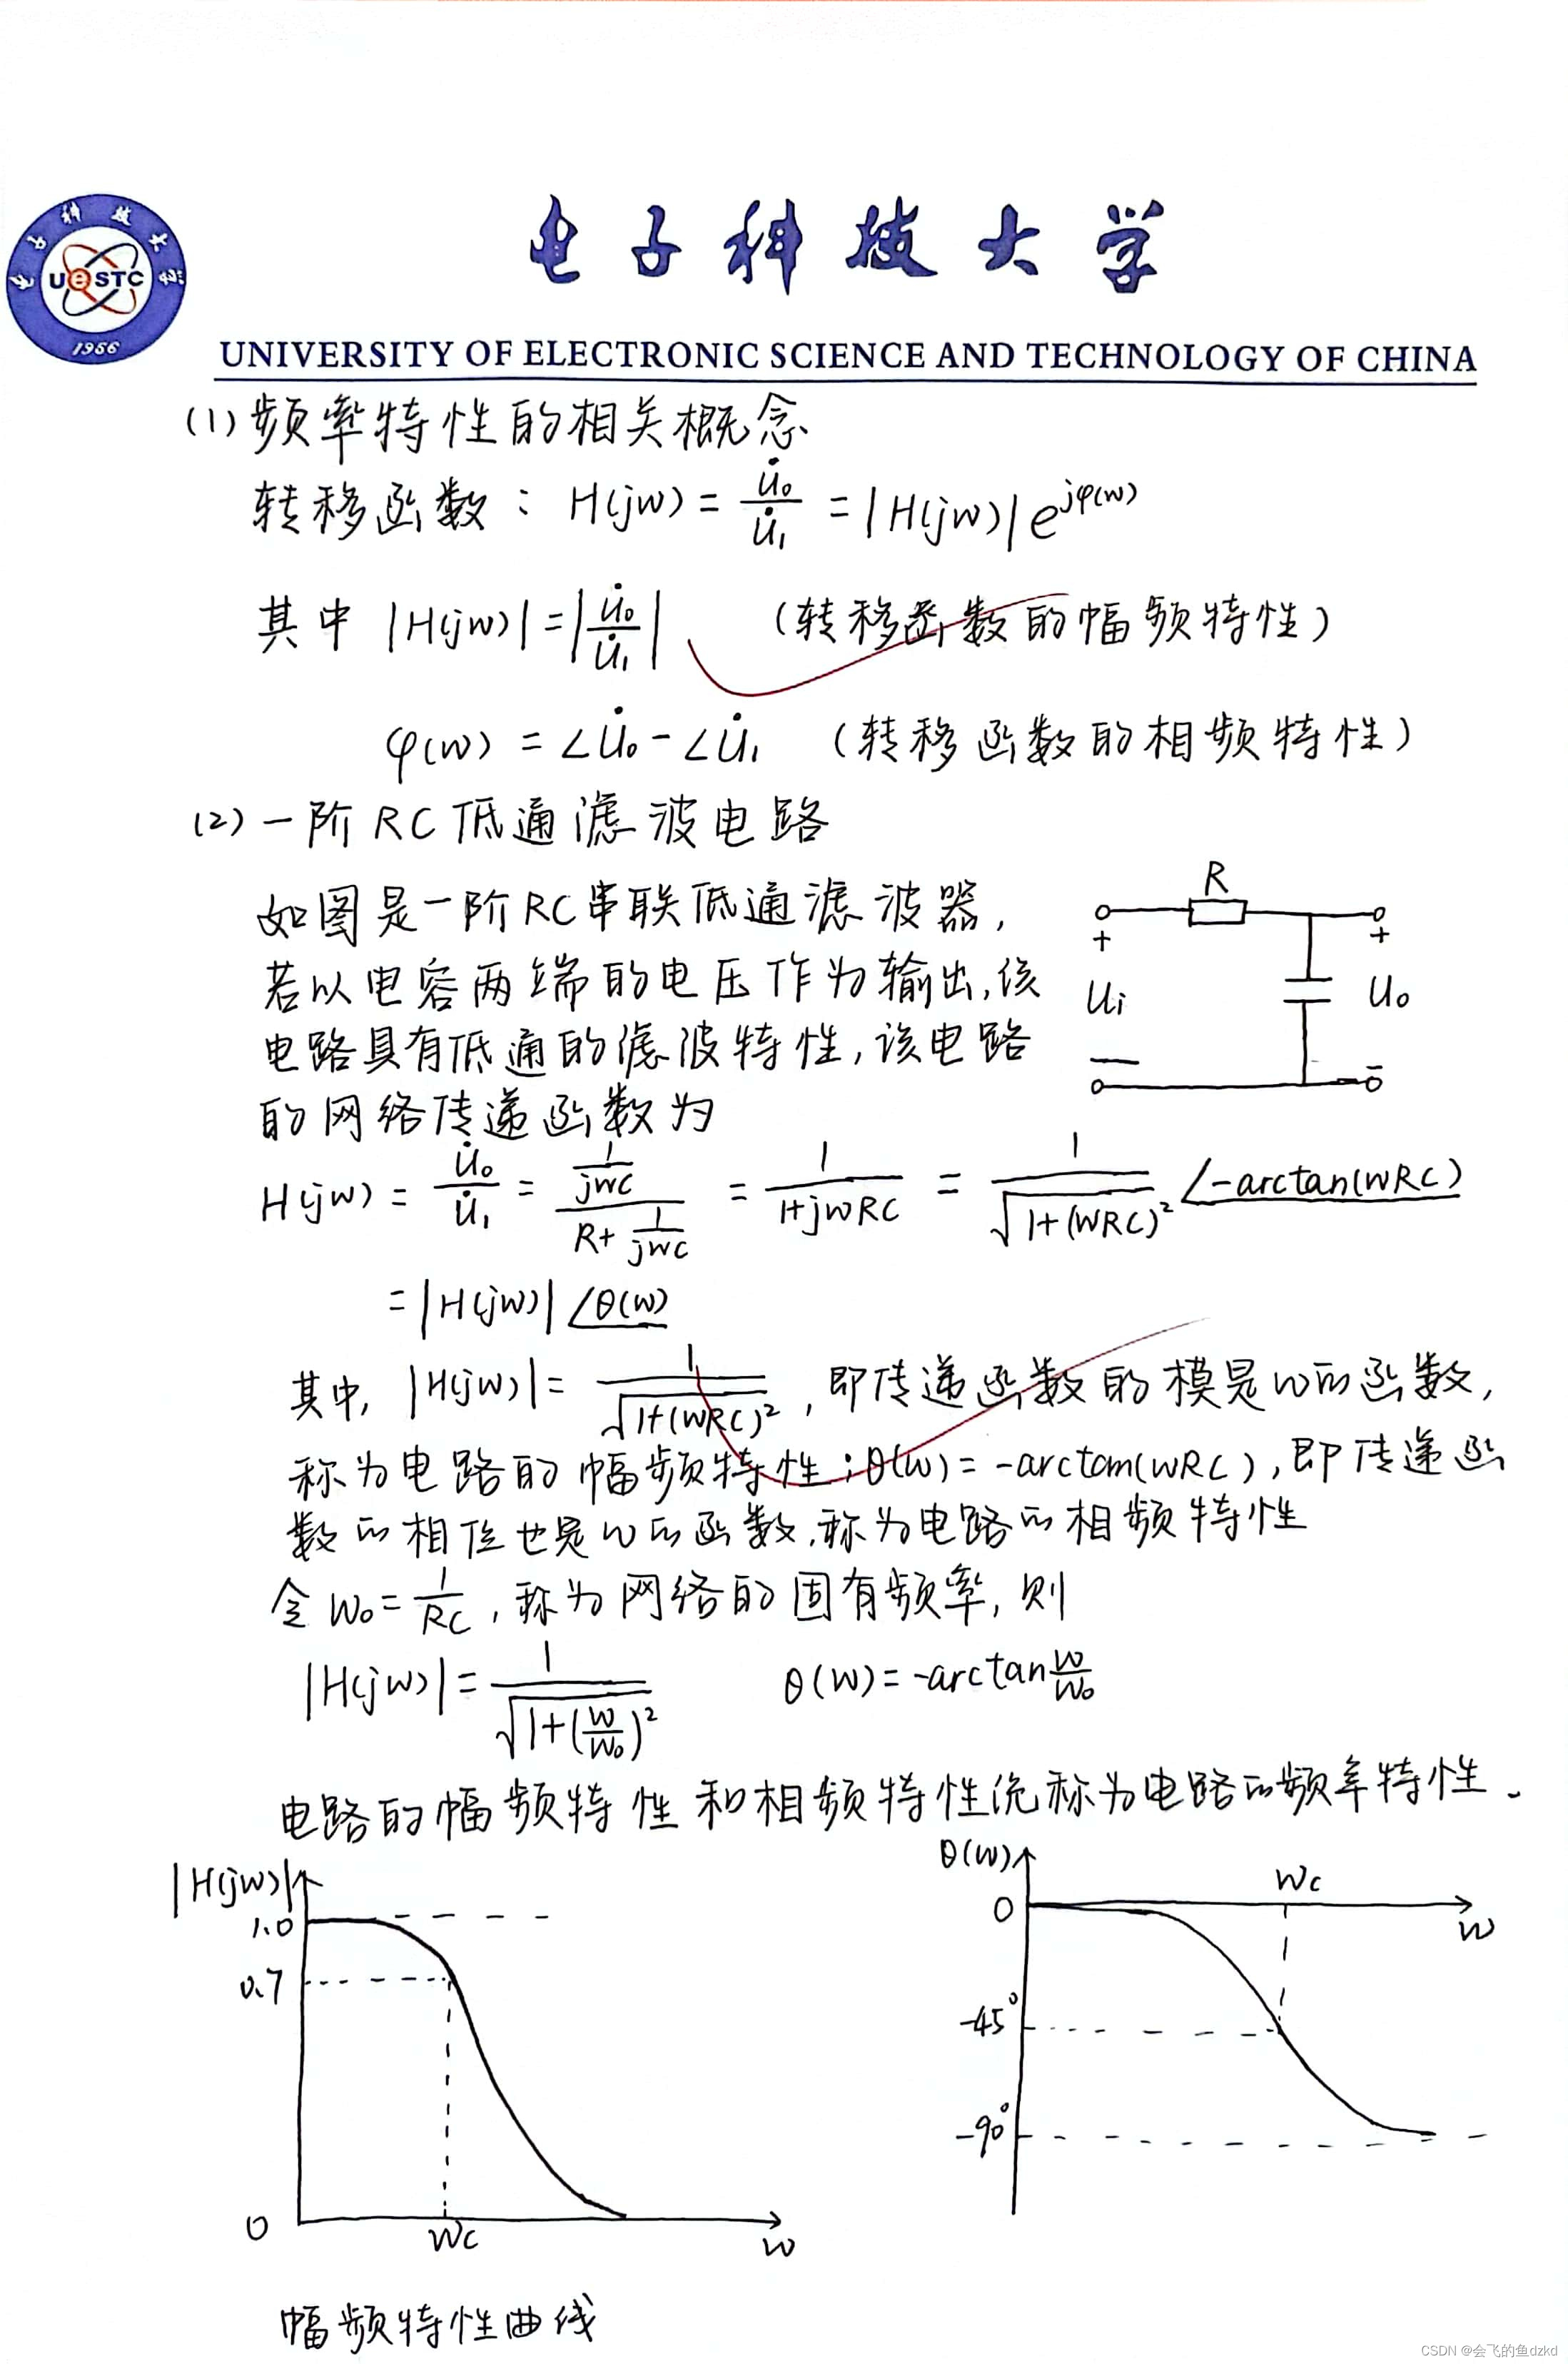 电子科技大学
UESTC
1956
UNIVERSITY OF ELECTRONIC SCIENCE AND TECHNOLOGY OF CHINA
(1) 频率特性的相关概念
转移函数：H(jw) = U̇₀/U̇₁ = |H(jw)| e^{jφ(w)}
其中 |H(jw)| = |U̇₀/U̇₁| （转移函数的幅频特性）
φ(w) = ∠U̇₀ - ∠U̇₁ （转移函数的相频特性）
(2) 一阶RC低通滤波电路
如图是一阶RC串联低通滤波器，
若以电容两端的电压作为输出，该
电路具有低通的滤波特性，该电路
的网络传递函数为
R
+ +
Ui Uo
— -
H(jw) = U̇₀/U̇₁ = (1/jwC)/(R+1/jwC) = 1/(1+jwRC) = 1/√(1+(wRC)²) ∠-arctan(wRC)
= |H(jw)| ∠θ(w)
其中，|H(jw)| = 1/√(1+(wRC)²)，即传递函数的模是w的函数，
称为电路的幅频特性；θ(w) = -arctan(wRC)，即传递函
数的相位也是w的函数，称为电路的相频特性
令 w₀ = 1/RC，称为网络的固有频率，则
|H(jw)| = 1/√(1+(w/w₀)²) θ(w) = -arctan w/w₀
电路的幅频特性和相频特性统称为电路的频率特性.
|H(jw)|
1.0
0.7
0
wc
w
θ(w)
0
wc
w
-45°
-90°
幅频特性曲线
CSDN @会飞的鱼dzkd